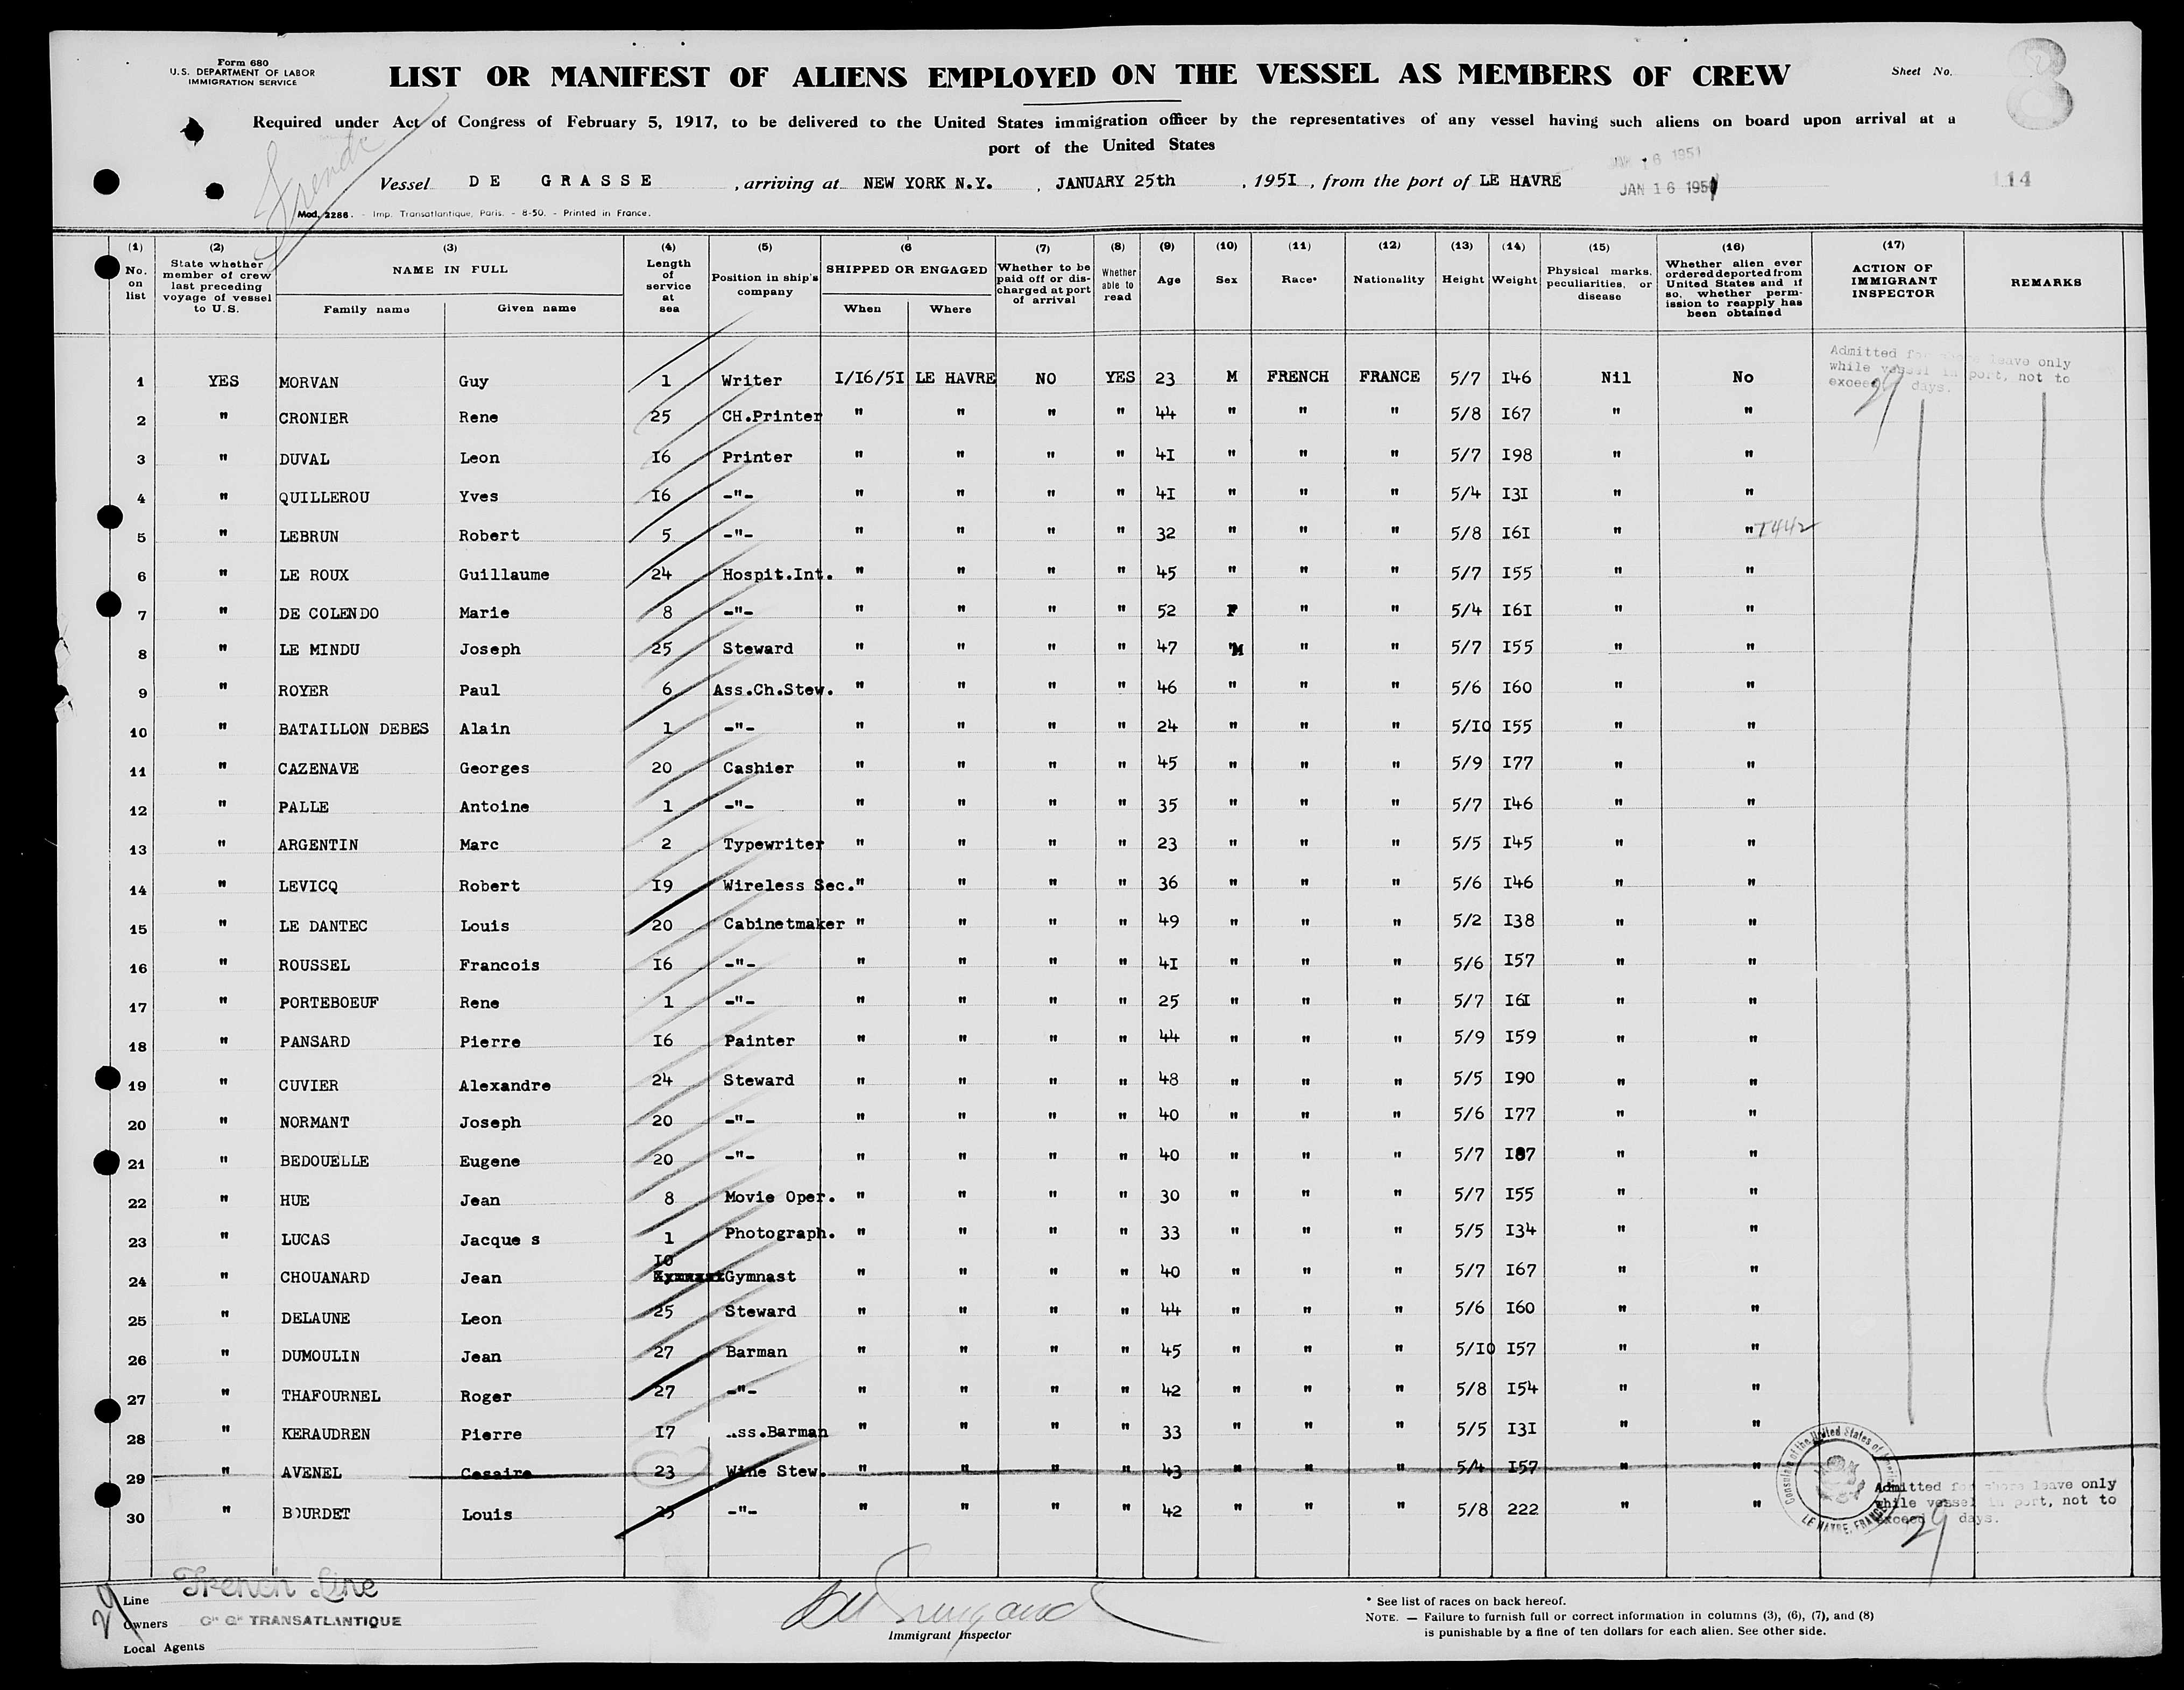 Form 680
U.S. DEPARTMENT OF LABOR
IMMIGRATION SERVICE
LIST OR MANIFEST OF ALIENS EMPLOYED ON THE VESSEL AS MEMBERS OF CREW
Sheet No.
8
Required under Act of Congress of February 5, 1917, to be delivered to the United States immigration officer by the representatives of any vessel having such aliens on board upon arrival at a
port of the United States
JAN 16 1951
Vessel DE GRASSE , arriving at NEW YORK N.Y. , JANUARY 25th , 195I , from the port of LE HAVRE JAN 16 1951 114
Mod. 2286. - Imp. Transatlantique, Paris. - 8-50. - Printed in France.
(1) No. on list
(2) State whether member of crew last preceding voyage of vessel to U.S.
(3) NAME IN FULL Family name Given name
(4) Length of service at sea
(5) Position in ship's company
(6 SHIPPED OR ENGAGED When Where
(7) Whether to be paid off or discharged at port of arrival
(8) Whether able to read
(9) Age
(10) Sex
(11) Race*
(12) Nationality
(13) Height
(14) Weight
(15) Physical marks, peculiarities, or disease
(16) Whether alien ever ordered deported from United States and if so, whether permission to reapply has been obtained
(17) ACTION OF IMMIGRANT INSPECTOR
REMARKS
Admitted for shore leave only
while vessel in port, not to
exceed 29 days.
1 YES MORVAN Guy 1 Writer I/I6/5I LE HAVRE NO YES 23 M FRENCH FRANCE 5/7 I46 Nil No
2 " CRONIER Rene 25 CH.Printer " " " " 44 " " " 5/8 I67 " "
3 " DUVAL Leon I6 Printer " " " " 4I " " " 5/7 I98 " "
4 " QUILLEROU Yves I6 -"- " " " " 4I " " " 5/4 I3I " "
5 " LEBRUN Robert 5 -"- " " " " 32 " " " 5/8 I6I " " T442
6 " LE ROUX Guillaume 24 Hospit.Int. " " " " 45 " " " 5/7 I55 " "
7 " DE COLENDO Marie 8 -"- " " " " 52 F " " 5/4 I6I " "
8 " LE MINDU Joseph 25 Steward " " " " 47 "M " " 5/7 I55 " "
9 " ROYER Paul 6 Ass.Ch.Stew. " " " " 46 " " " 5/6 I60 " "
10 " BATAILLON DEBES Alain 1 -"- " " " " 24 " " " 5/IO I55 " "
11 " CAZENAVE Georges 20 Cashier " " " " 45 " " " 5/9 I77 " "
12 " PALLE Antoine 1 -"- " " " " 35 " " " 5/7 I46 " "
13 " ARGENTIN Marc 2 Typewriter " " " " 23 " " " 5/5 I45 " "
14 " LEVICQ Robert I9 Wireless Sec." " " " 36 " " " 5/6 I46 " "
15 " LE DANTEC Louis 20 Cabinetmaker " " " " 49 " " " 5/2 I38 " "
16 " ROUSSEL Francois I6 -"- " " " " 4I " " " 5/6 I57 " "
17 " PORTEBOEUF Rene 1 -"- " " " " 25 " " " 5/7 I6I " "
18 " PANSARD Pierre I6 Painter " " " " 44 " " " 5/9 I59 " "
19 " CUVIER Alexandre 24 Steward " " " " 48 " " " 5/5 I90 " "
20 " NORMANT Joseph 20 -"- " " " " 40 " " " 5/6 I77 " "
21 " BEDOUELLE Eugene 20 -"- " " " " 40 " " " 5/7 I87 " "
22 " HUE Jean 8 Movie Oper. " " " " 30 " " " 5/7 I55 " "
23 " LUCAS Jacque s 1 Photograph. " " " " 33 " " " 5/5 I34 " "
24 " CHOUANARD Jean IO Gymnast " " " " 40 " " " 5/7 I67 " "
25 " DELAUNE Leon 25 Steward " " " " 44 " " " 5/6 I60 " "
26 " DUMOULIN Jean 27 Barman " " " " 45 " " " 5/IO I57 " "
27 " THAFOURNEL Roger 27 -"- " " " " 42 " " " 5/8 I54 " "
28 " KERAUDREN Pierre I7 ss.Barman " " " " 33 " " " 5/5 I3I " "
29 " AVENEL Cesaire 23 Wine Stew. " " " " 43 " " " 5/4 I57 " "
30 " BOURDET Louis 25 -"- " " " " 42 " " " 5/8 222 " "
Consulate of the United States of America
LE HAVRE, FRANCE
Admitted for shore leave only
while vessel in port, not to
exceed 29 days.
29
Line French Line
Owners Cie Gle TRANSATLANTIQUE
Local Agents
Immigrant Inspector
* See list of races on back hereof.
NOTE. — Failure to furnish full or correct information in columns (3), (6), (7), and (8)
is punishable by a fine of ten dollars for each alien. See other side.